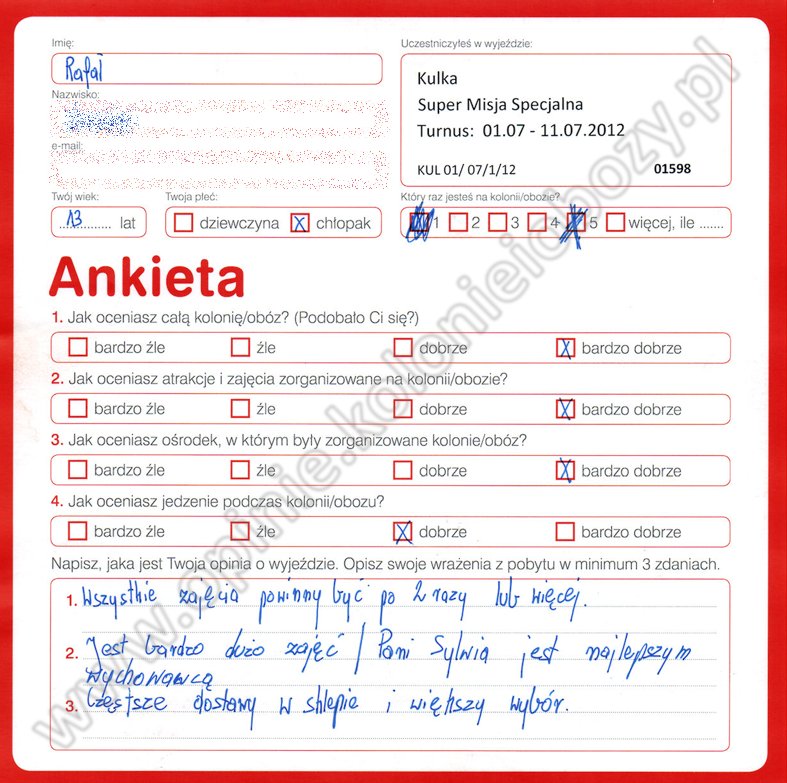 Imię:
Rafał
Uczestniczyłeś w wyjeździe:
Kulka
Super Misja Specjalna
Turnus: 01.07 - 11.07.2012
KUL 01/ 07/1/12 01598
Nazwisko:
e-mail:
Twój wiek:
13 lat
Twoja płeć:
dziewczyna X chłopak
Który raz jesteś na kolonii/obozie?
1 2 3 4 5 więcej, ile .......
Ankieta
1. Jak oceniasz całą kolonię/obóz? (Podobało Ci się?)
bardzo źle źle dobrze X bardzo dobrze
2. Jak oceniasz atrakcje i zajęcia zorganizowane na kolonii/obozie?
bardzo źle źle dobrze X bardzo dobrze
3. Jak oceniasz ośrodek, w którym były zorganizowane kolonie/obóz?
bardzo źle źle dobrze X bardzo dobrze
4. Jak oceniasz jedzenie podczas kolonii/obozu?
bardzo źle źle X dobrze bardzo dobrze
Napisz, jaka jest Twoja opinia o wyjeździe. Opisz swoje wrażenia z pobytu w minimum 3 zdaniach.
1. Wszystkie zajęcia powinny być po 2 razy lub więcej.
2. Jest bardzo dużo zajęć / Pani Sylwia jest najlepszym
wychowawcą
3. Częstsze dostawy w sklepie i większy wybór.
www.opinie.kolonieiobozy.pl